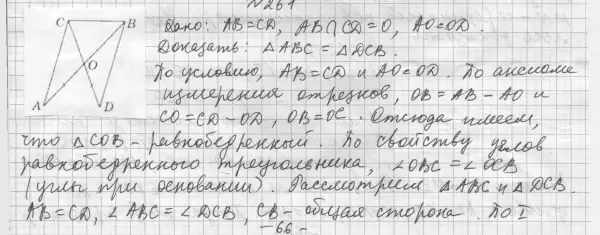 №261
C B Дано: AB=CD, AB∩CD=O, AO=OD.
Доказать: △ABC=△DCB.
O По условию, AB=CD и AO=OD. По аксиоме
измерения отрезков, OB=AB-AO и
A D CO=CD-OD, OB=OC. Отсюда имеем,
что △COB - равнобедренный. По свойству углов
равнобедренного треугольника, ∠OBC=∠OCB
(углы при основании). Рассмотрим △ABC и △DCB.
AB=CD, ∠ABC=∠DCB, CB - общая сторона. По I
-66-